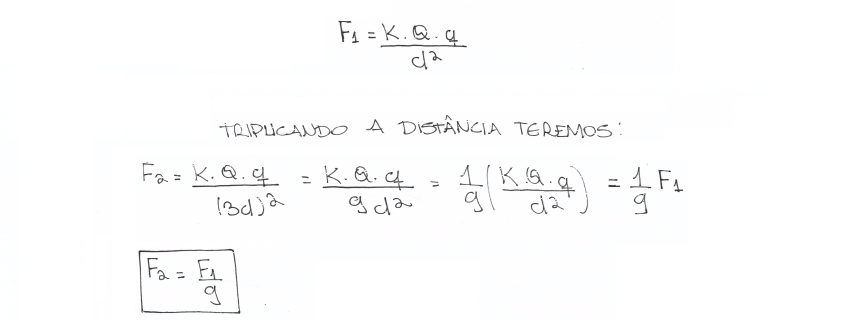 F1 = K.Q.q / d²
TRIPLICANDO A DISTÂNCIA TEREMOS:
F2 = K.Q.q / (3d)² = K.Q.q / 9d² = 1/9 (K.Q.q / d²) = 1/9 F1
F2 = F1/9